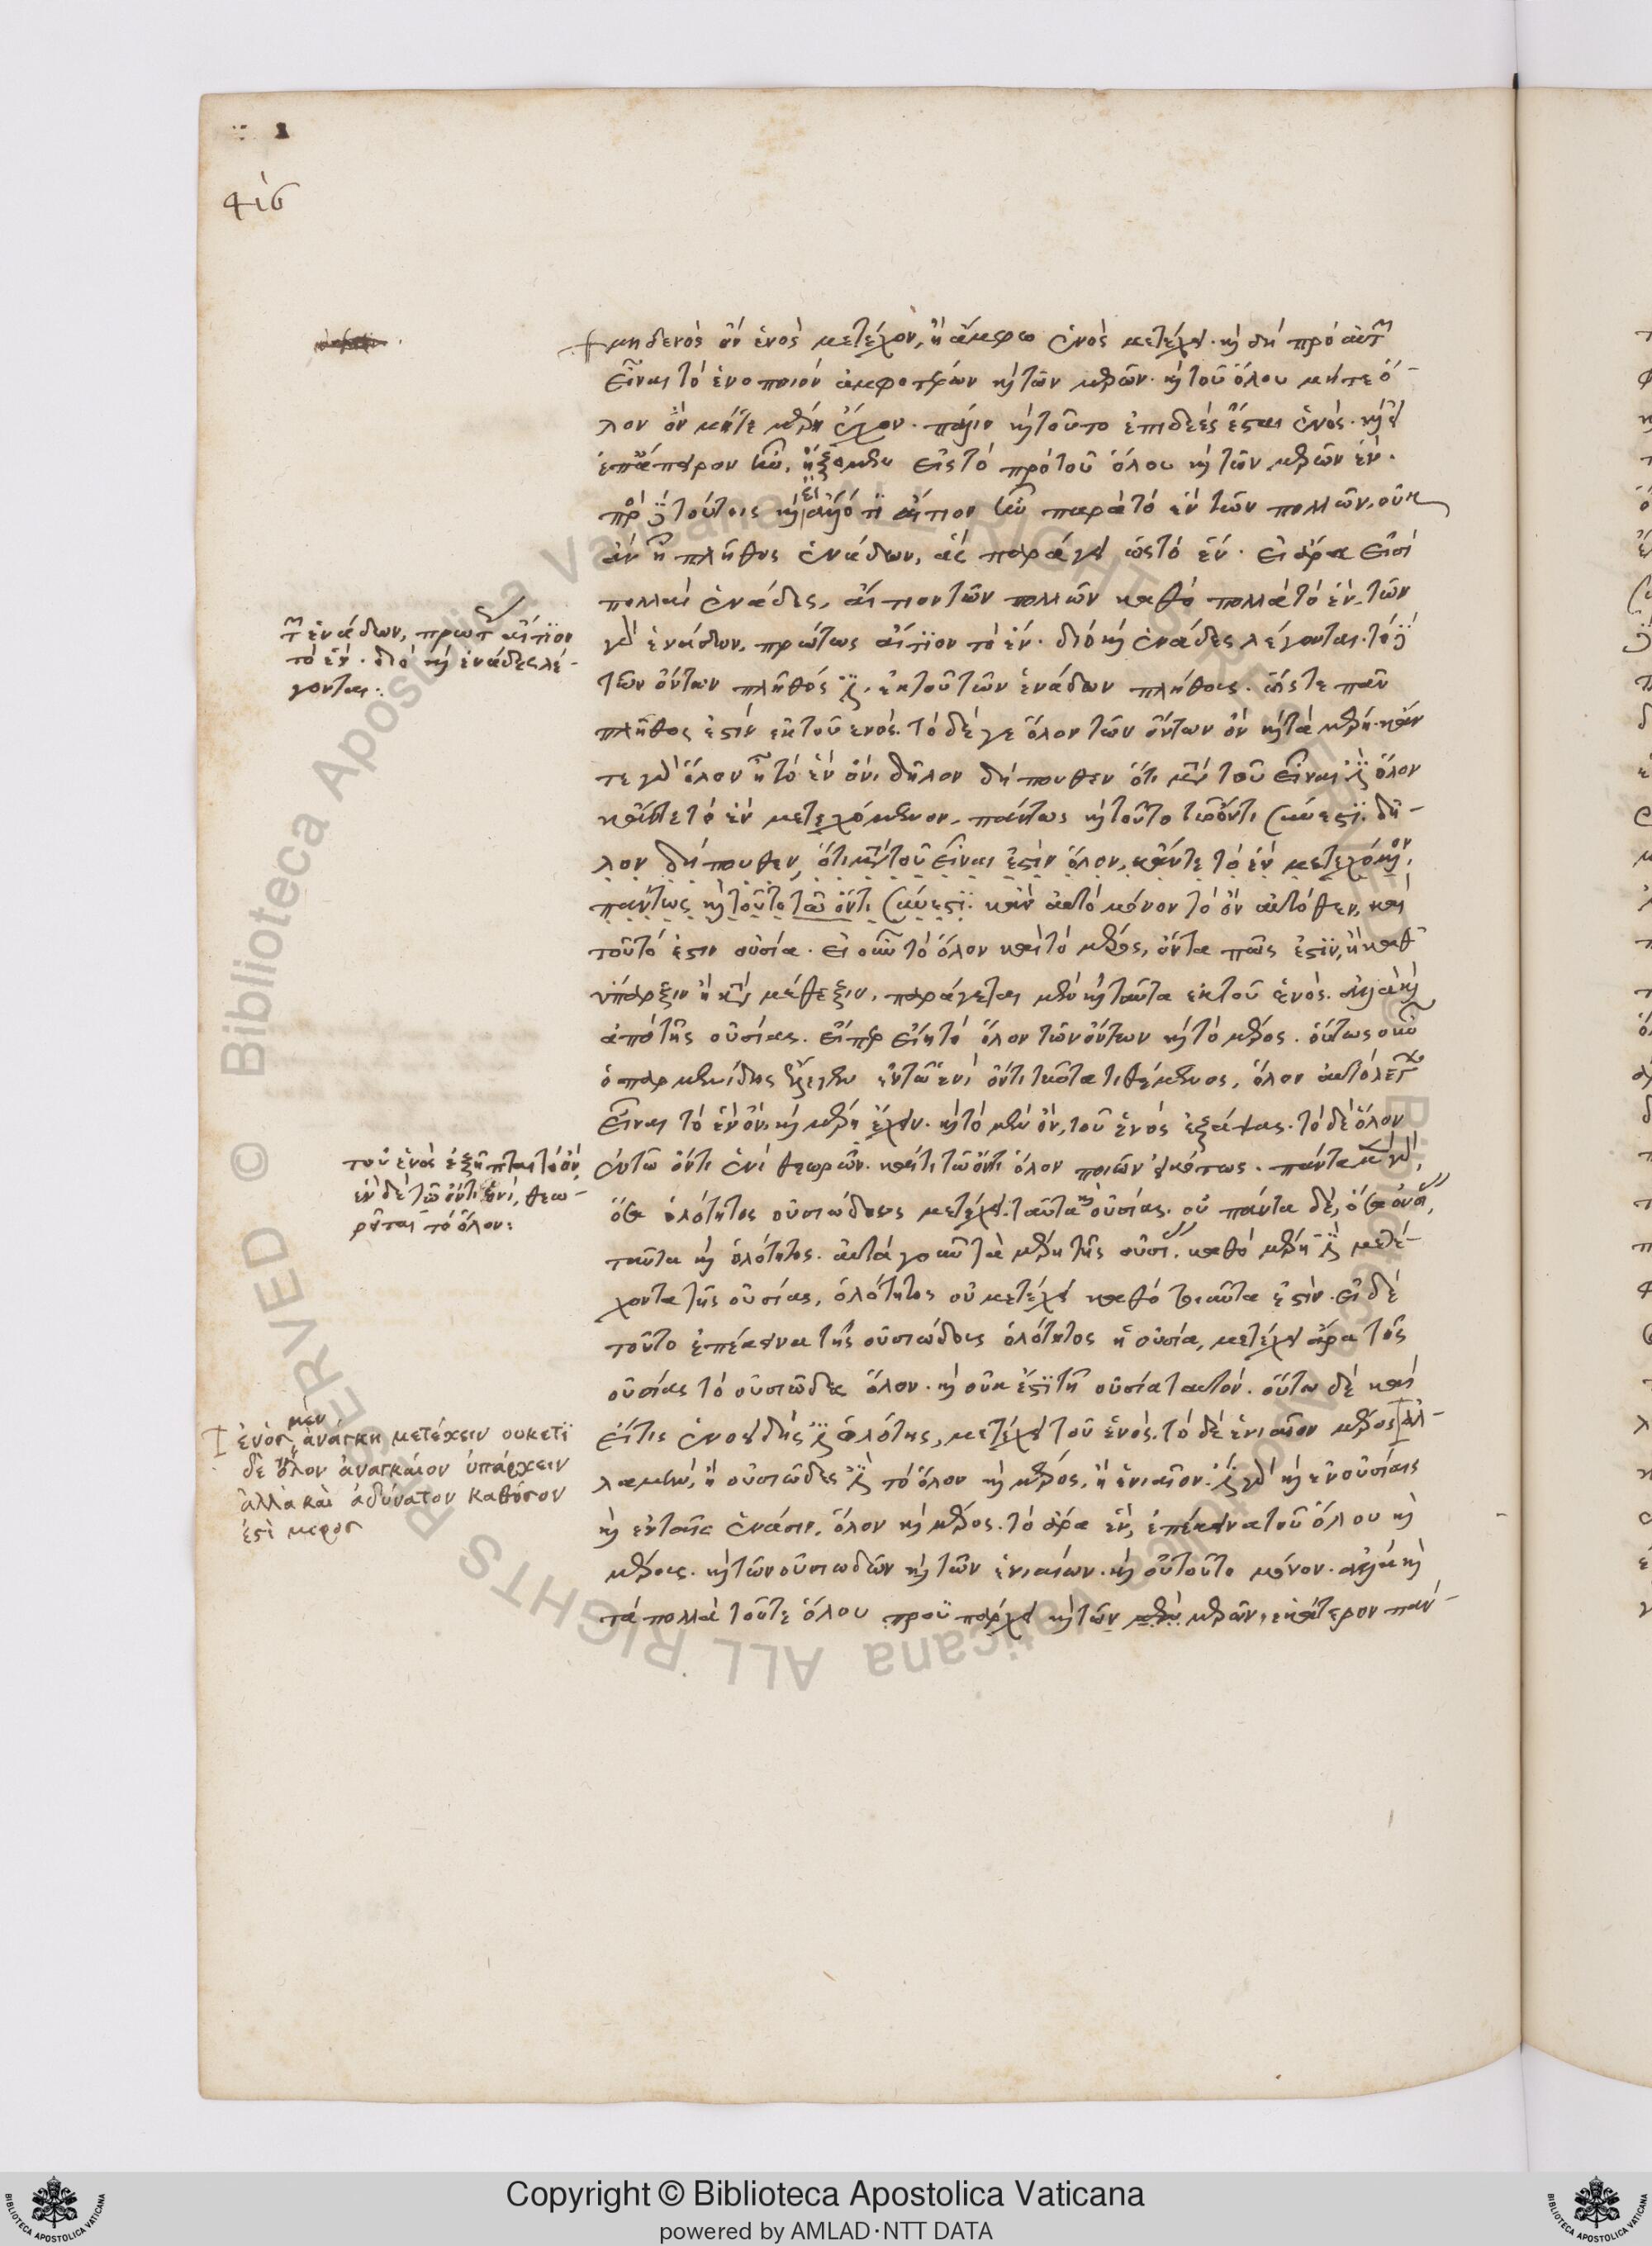 μηδενὸς ὂν ἑνὸς μετέχον, ἢ ἄμφω ἑνὸς μετέχει. καὶ δεῖ πρὸ αὐτῶν
εἶναι τὸ ἑνοποιὸν ἀμφοτέρων καὶ τῶν μερῶν. καὶ τοῦ ὅλου μήτε ὅ-
λον ὂν μήτε μέρη ἔχον. πάλιν καὶ τοῦτο ἐπιδεὲς ἔσται ἑνὸς. καὶ ἢ
ἐπ' ἄπειρον ἰὼν, ἢ ἥξομεν εἰς τὸ πρὸ τοῦ ὅλου καὶ τῶν μερῶν ἕν.
πρὸς δὲ τούτοις καὶ εἰ ἄλλό τι αἴτιον ἦν παρὰ τὸ ἓν τῶν πολλῶν, οὐκ
ἂν ἦν πλῆθος ἑνάδων, ἃς παράγει ὡς τὸ ἕν. εἰ ἄρα εἰσὶ
πολλαὶ ἑνάδες, αἴτιον τῶν πολλῶν καθὸ πολλὰ τὸ ἕν. τῶν
γὰρ ἑνάδων, πρώτως αἴτιον τὸ ἕν. διὸ καὶ ἑνάδες λέγονται. τὸ δὲ
τῶν ὄντων πλῆθός ἐστιν, ἐκ τοῦ τῶν ἑνάδων πλήθους. ὥστε πᾶν
πλῆθος ἐστὶν ἐκ τοῦ ἑνός. τὸ δέ γε ὅλον τῶν ὄντων ὂν καὶ τὰ μέρη. κἄν
τε γὰρ ὅλον ᾖ τὸ ἓν ὂν, δῆλον δήπουθεν ὅτι μετὰ τοῦ εἶναι ἐστὶν ὅλον
κἄν τε τὸ ἓν μετεχόμενον, πάντως καὶ τοῦτο τῷ ὄντι σύνεστι. δῆ-
λον δήπουθεν, ὅτι μετὰ τοῦ εἶναι ἐστὶν ὅλον, κἄν τε τὸ ἓν μετεχόμενον,
πάντως καὶ τοῦτο τῷ ὄντι σύνεστι. κἂν αὐτὸ μόνον τὸ ὂν αὐτόθεν, καὶ
τοῦτό ἐστιν οὐσία. εἰ οὖν τὸ ὅλον καὶ τὸ μέρος, ὄντα πως ἐστὶν, ἢ καθ'
ὕπαρξιν ἢ κατὰ μέθεξιν, παράγεται μὲν καὶ ταῦτα ἐκ τοῦ ἑνός. ἀλλὰ καὶ
ἀπὸ τῆς οὐσίας. εἴπερ εἴη τὸ ὅλον τῶν ὄντων καὶ τὸ μέρος. οὕτως οὖν
ὁ παρμενίδης ἔδειξεν ἐν τῷ ἑνὶ ὄντι ταῦτα τιθέμενος, ὅλον αὐτὸ λέγων
εἶναι τὸ ἓν ὂν, καὶ μέρη ἔχειν. καὶ τὸ μὲν ὂν, τοῦ ἑνὸς ἐξάψας. τὸ δὲ ὅλον
ἐν τῷ ὄντι ἑνὶ θεωρῶν. καί τι τῷ ὄντι ὅλον ποιῶν εἰκότως. πάντα μὲν γὰρ,
ὅσα ὁλότητος οὐσιώδους μετέχει. ταῦτα καὶ οὐσίας. οὐ πάντα δὲ, ὅσα οὐσίας,
ταῦτα καὶ ὁλότητος. αὐτὰ γοῦν τὰ μέρη τῆς οὐσίας, καθὸ μέρη ἐστὶ μετέ-
χοντα τῆς οὐσίας, ὁλότητος οὐ μετέχει καθὸ τοιαῦτα ἐστίν. εἰ δὲ
τοῦτο ἐπέκεινα τῆς οὐσιώδους ὁλότητος ἡ οὐσία, μετέχει ἄρα τῆς
οὐσίας τὸ οὐσιῶδες ὅλον. καὶ οὐκ ἔστι τῇ οὐσίᾳ ταὐτόν. οὕτω δὲ καὶ
εἴ τις ἑνοειδής ἐστιν ὁλότης, μετέχει τοῦ ἑνός. τὸ δὲ ἑνιαῖον μέρος ἀλ-
λὰ μὴν, ἢ οὐσιῶδες ἐστὶ τὸ ὅλον καὶ μέρος, ἢ ἑνιαῖον. ἔστι γὰρ καὶ ἐν οὐσίαις
καὶ ἐν ταῖς ἑνάσιν, ὅλον καὶ μέρος. τὸ ἄρα ἓν, ἐπέκεινα τοῦ ὅλου καὶ
μέρους. καὶ τῶν οὐσιωδῶν καὶ τῶν ἑνιαίων. καὶ οὐ τοῦτο μόνον. ἀλλὰ καὶ
τὰ πολλὰ τοῦ τε ὅλου προϋπάρχει καὶ τῶν μὲν μερῶν, ἑκάτερον παν-
τῶν ἑνάδων, πρώτως αἴτιον
τὸ ἕν. διὸ καὶ ἑνάδες λέ-
γονται:
τοῦ ἑνὸς ἐξῆπται τὸ ὂν,
ἐν δὲ τῷ ὄντι ἑνὶ, θεω-
ρεῖται τὸ ὅλον:
ἑνὸς μὲν ἀνάγκη μετέχειν ουκετι
δὲ ὅλον ἀναγκαιον ὑπάρχειν
ἀλλὰ καὶ ἀδύνατον καθόσον
ἐστὶ μερος
Copyright © Biblioteca Apostolica Vaticana
powered by AMLAD·NTT DATA